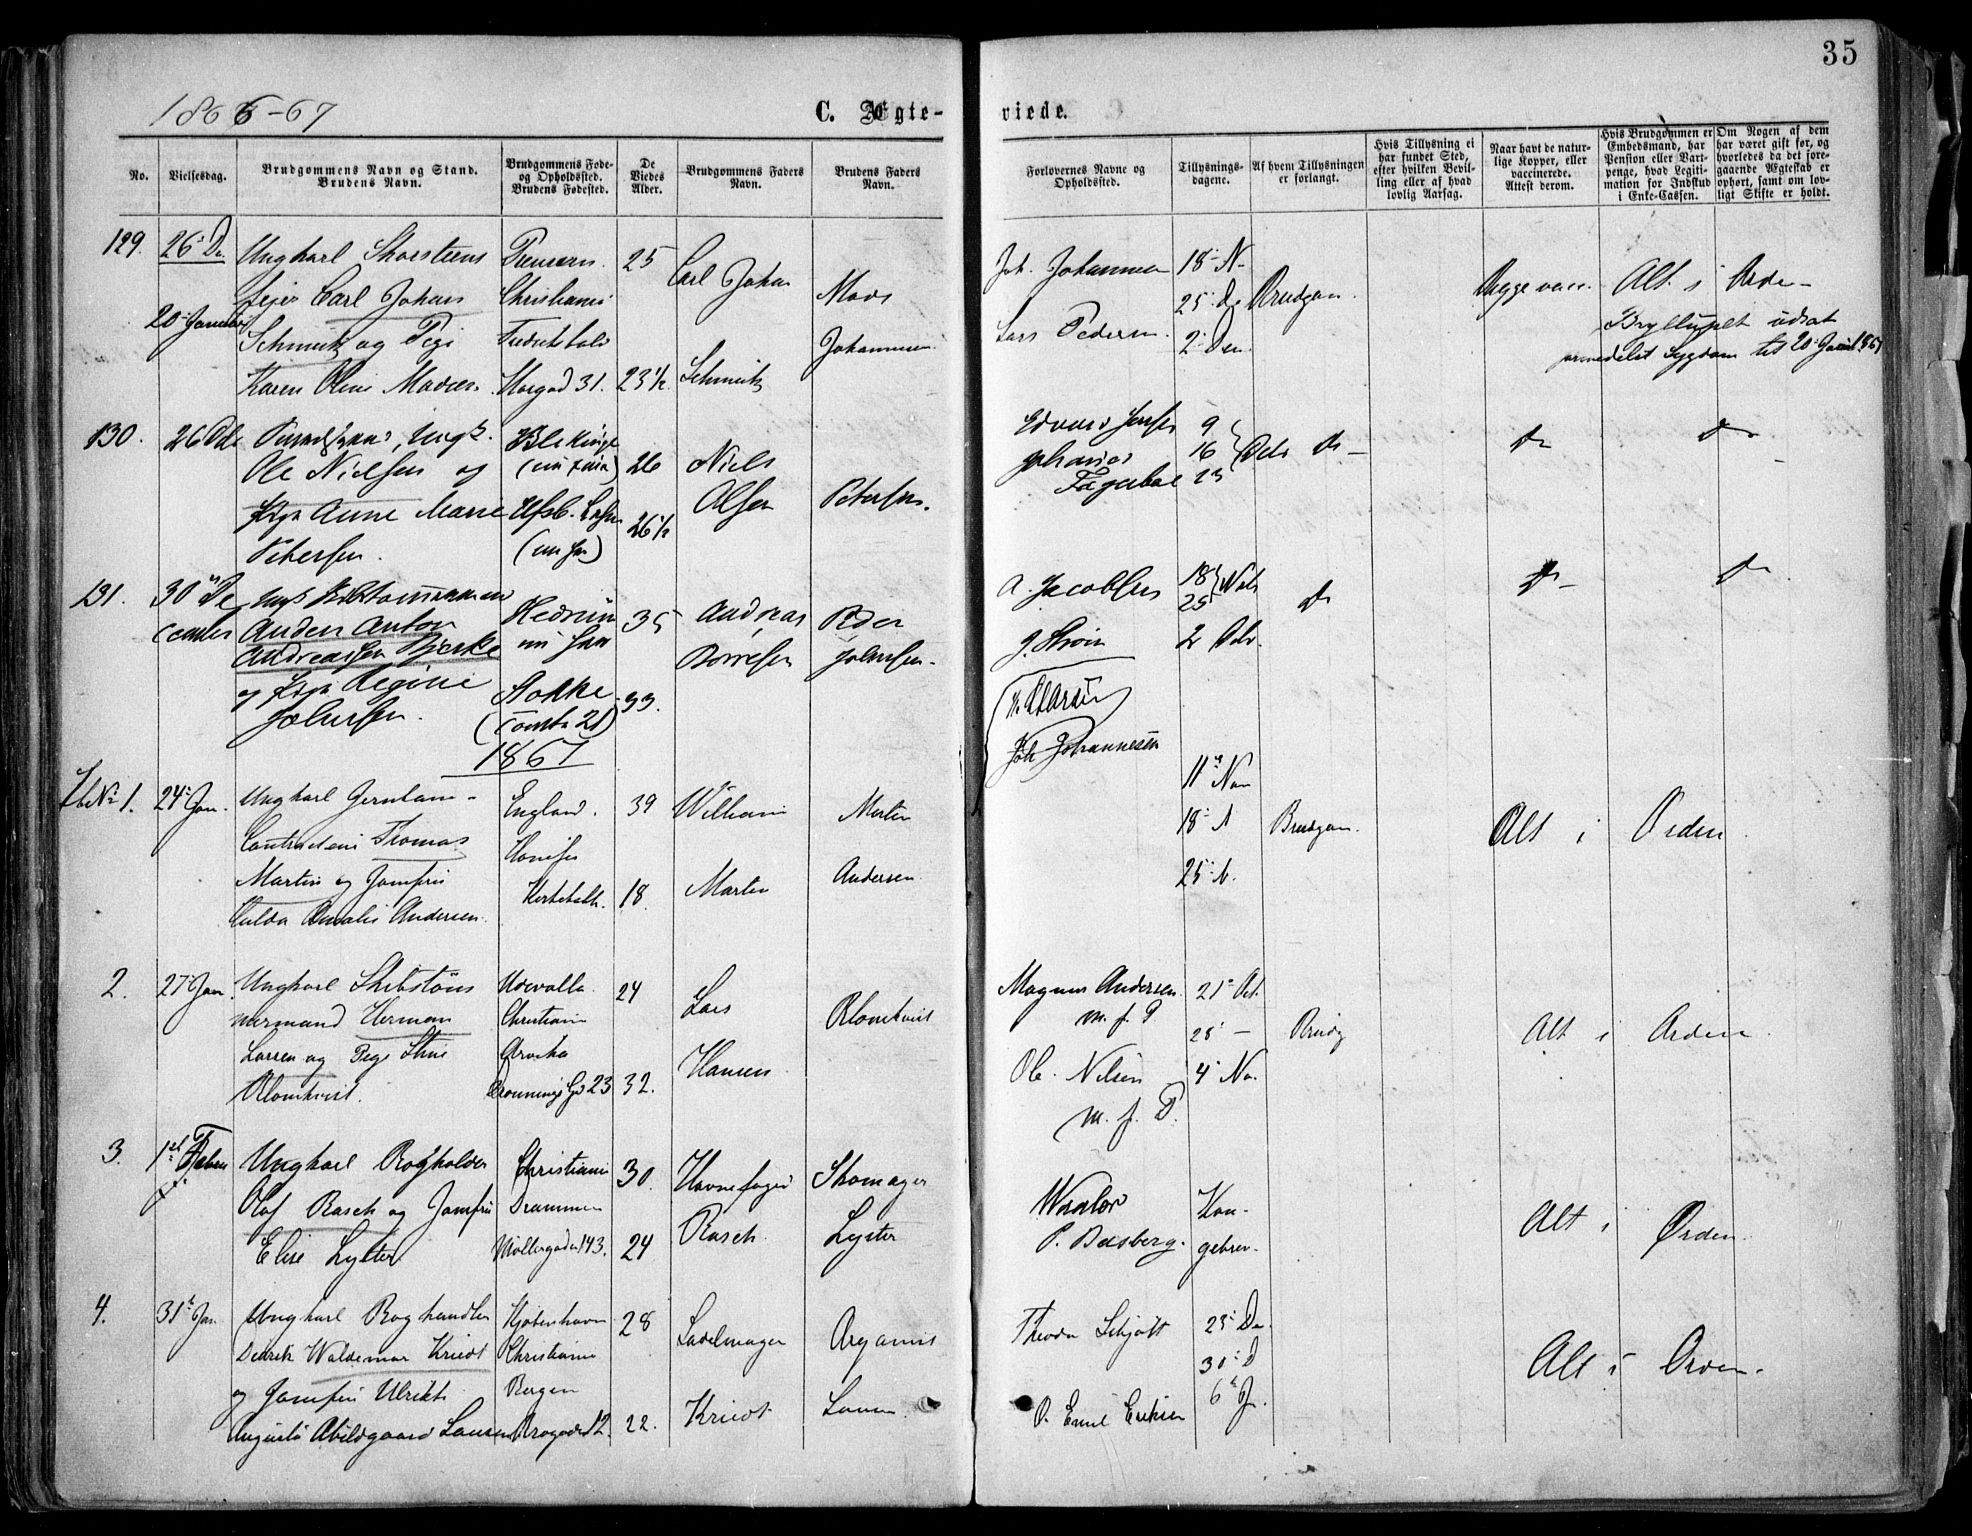 35
1866-67
C. Ægte-
viede.
No.
Vielsesdag.
Brudgommens Navn og Stand.
Brudens Navn.
Brudgommens Føde-
og Opholdssted.
Brudens Fødested.
De
Viedes
Alder.
Brudgommens Faders
Navn.
Brudens Faders
Navn.
Forlovernes Navne og
Opholdssted.
Tillysnings-
dagene.
Af hvem Tillysningen
er forlangt.
Hvis Tillysning ei
har fundet Sted,
efter hvilken Bevil-
ling eller af hvad
lovlig Aarsag.
Naar havt de natur-
lige Kopper, eller
vaccinerede.
Attest derom.
Hvis Brudgommen er
Embedsmand, har
Pension eller Vart-
penge, hvad Legiti-
mation for Indskud
i Enke-Cassen.
Om Nogen af dem
har været gift før, og
hvorledes da det fore-
gaaende Ægteskab er
ophørt, samt om lov-
ligt Skifte er holdt.
129.
26 De.
20 Januar
Ungkarl Skorsteens
feier Carl Johan
Schmidtz og Pige
Karen Oline Madsen
Christiania
Fredrikshald
25
23 1/2
Carl Johan
Schmidtz
Mads
Johannesen
Joh. Johannesen
Lars Pedersen
18 N
25 De
2 Den
Brudgom.
Begge vacc.
Alt i Orden
Bryllupet udsat
formedelst Sygdom til 20 Januar 1867
130.
26 Dcb
Ungk.
Ole Nielsen og
Pige Anne Marie
Petersen.
Blekinge
26
26 1/2
Niels
Olsen
Petersen.
Edvard Jensen
Johannes
Fagerbal
9
16
23
Debr
do
do
do
131.
30 De
cember
Anders Anton
Andreassen Bjerke
og Pige Regine
Johnsen.
Hedrum
Stokke
(Tomtb 21)
35
33.
Andreas
Børresen
Peder
Johnsen.
A. Jacobsen
J. Strøm
Joh Johannesen
18
25
Nobr
2 Debr.
do
do
do
1867
No 1.
24 Jan.
Ungkarl Gernbane-
Thomas
Martin og Jomfru
Hulda Amalie Andersen.
England.
39
18.
William
Martin
Morten
Andersen.
11 Nov
18 N
25 N.
Brudgom.
Alt i Orden
2.
27 Jan.
Ungkarl Skibstøm-
mermand Herman
Larsen og Pige Stine
Blomkvist.
Udevalla.
Christiania
Arvika
Dronnings Gd 23
24
32.
Lars
Hansen
Blomkvist
Magnus Andersen.
m. f. P
Ole Nilsen
m. f. P.
21 Oct.
28 —
4 No.
Brudg
Alt i Orden.
3.
1st Febru
Ungkarl Bogholder
Olaf Rasch og Jomfru
Elise Lyster
Christiania
Drammen
Møllergaden 43.
30.
24
Havnefoged
Rasch.
Skomager
Lyster
P. Basberg.
Kon-
gebrev.
Alt i Orden.
4.
31t Jan.
Ungkarl Boghandler
Didrik Waldemar Kriedt
og Jomfru Ulrikke
Augusta Abildgaard Larsen
Kjøbenhavn
Christiania
Bergen
28
22.
Sadelmager
Kriedt
Organist
Larsen.
Theodor Schjøtt
O. Emil Eriksen
23 De.
30 D
6t J.
Alt i Orden.